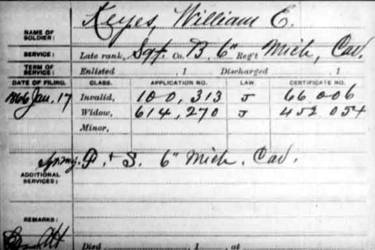 NAME OF SOLDIER: Keyes, William E.
SERVICE: Late rank, Sgt. Co. B, 6" Reg't Mich, Cav.
TERM OF SERVICE: Enlisted 1 Discharged 1
DATE OF FILING. CLASS. APPLICATION NO. LAW. CERTIFICATE NO.
1866 Jan, 17 Invalid, 100,313 66006
Widow, 614,270 452054
Minor,
ADDITIONAL SERVICES: P. + S. 6" Mich. Cav.
REMARKS:
Died , 1 , at